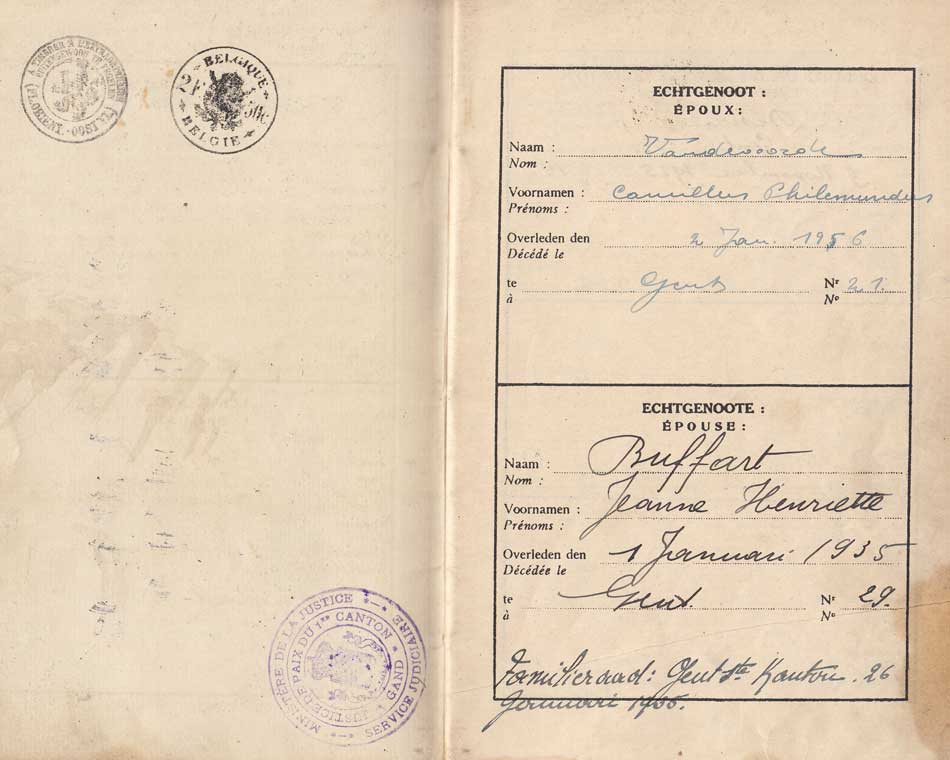 BELGIQUE
BELGIË
MINISTÈRE DE LA JUSTICE
SERVICE JUDICIAIRE
JUSTICE-DE-PAIX DU 1ER CANTON
GAND
ECHTGENOOT :
ÉPOUX :
Naam : Vandevoorde
Nom :
Voornamen : Camillus Philemundus
Prénoms :
Overleden den 2 Jan. 1956
Décédé le
te Gent Nr 21.
à No
ECHTGENOOTE :
ÉPOUSE :
Naam : Buffart
Nom :
Voornamen : Jeanne Henriette
Prénoms :
Overleden den 1 Januari 1935
Décédée le
te Gent. Nr 29.
à No
Familieraad: Gent 1ste Kanton. 26
Januari 1935.